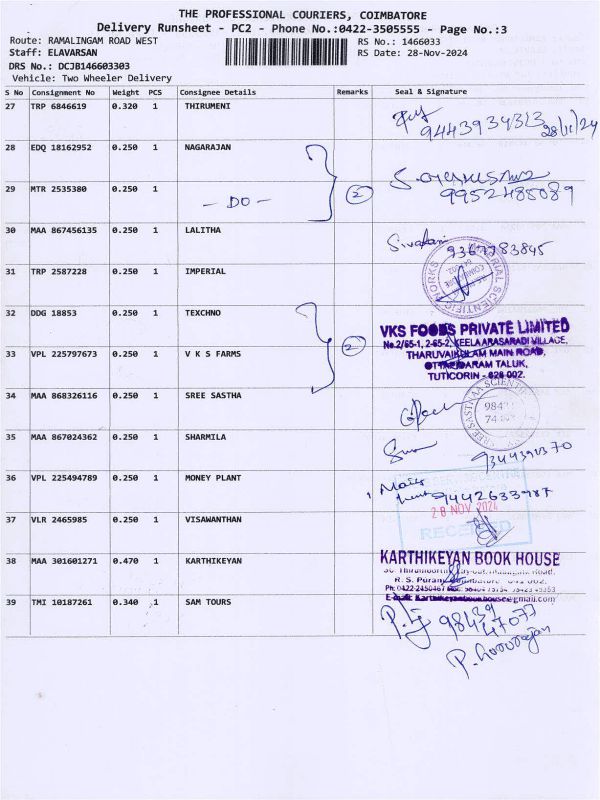 THE PROFESSIONAL COURIERS, COIMBATORE
Delivery Runsheet - PC2 - Phone No.:0422-3505555 - Page No.:3
Route: RAMALINGAM ROAD WEST
RS No.: 1466033
Staff: ELAVARSAN
RS Date: 28-Nov-2024
DRS No.: DCJB146603303
Vehicle: Two Wheeler Delivery
S No Consignment No Weight PCS Consignee Details Remarks Seal & Signature
27 TRP 6846619 0.320 1 THIRUMENI
9443934323 28/11/24
28 EDQ 18162952 0.250 1 NAGARAJAN
29 MTR 2535380 0.250 1 - DO - 2 9952485089
30 MAA 867456135 0.250 1 LALITHA
9367783845
31 TRP 2587228 0.250 1 IMPERIAL
32 DDG 18853 0.250 1 TEXCHNO
VKS FOODS PRIVATE LIMITED
No.2/65-1, 2-65-2, KEELAARASARADI VILLAGE,
33 VPL 225797673 0.250 1 V K S FARMS 2
THARUVAIKULAM MAIN ROAD,
OTTAPIDARAM TALUK,
TUTICORIN - 628 002.
34 MAA 868326116 0.250 1 SREE SASTHA
35 MAA 867024362 0.250 1 SHARMILA
9344391370
36 VPL 225494789 0.250 1 MONEY PLANT
9442633987
28 NOV 2024
37 VLR 2465985 0.250 1 VISAWANTHAN
RECEIVED
38 MAA 301601271 0.470 1 KARTHIKEYAN
KARTHIKEYAN BOOK HOUSE
R. S. Puram, Coimbatore - 641 002.
Ph: 0422-2450467
E-mail: Karthikeyanbookhouse@gmail.com
39 TMI 10187261 0.340 1 SAM TOURS
98439
47077